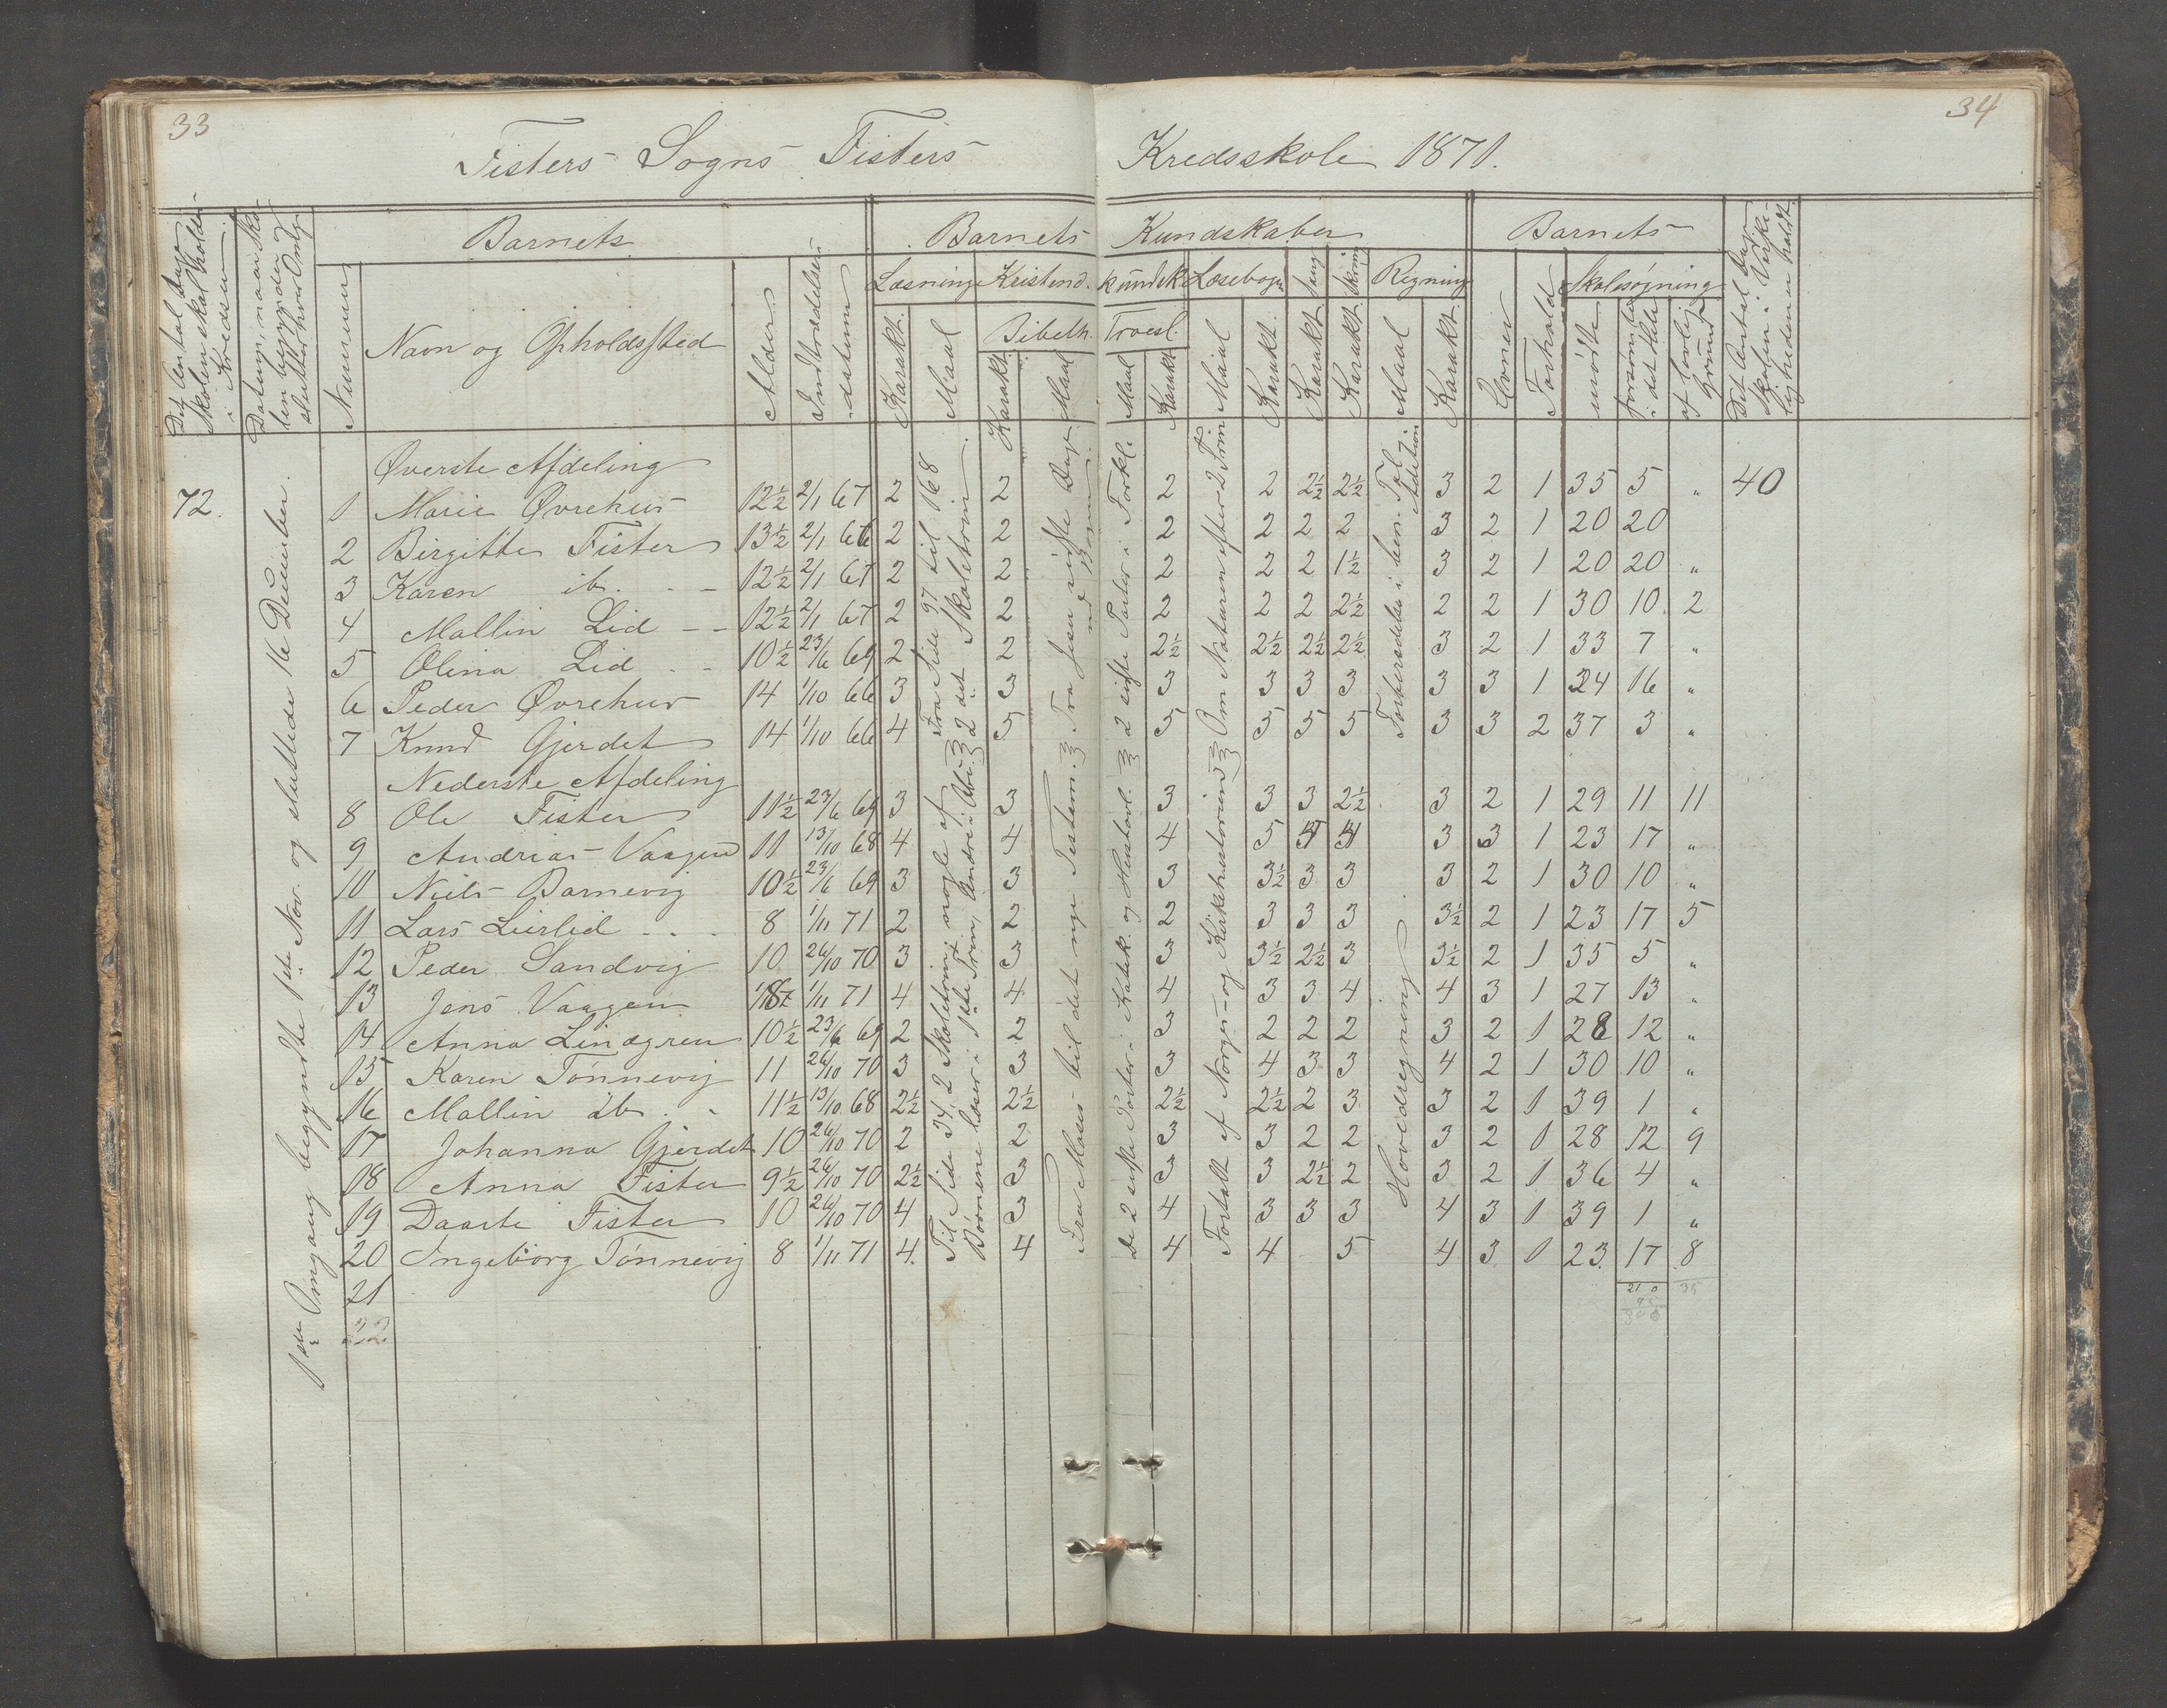 33
34
Fisters Sogns Fisters Kredsskole 1871.
Det Antal Dage Skolen skal holdes i Kredsen
Datum, naar Skolen begynder og slutter hver Omg.
Nummer
Barnets
Navn og Opholdssted
Alder
Indtrædelses datum
Barnets Kundskaber
Læsning
Karakt.
Maal
Kristend. kundsk.
Bibelh.
Karakt.
Maal
Troesl.
Maal
Karakt.
Læsebogen
Maal
Karakt.
Sang
Karakt.
Skrivn
Karakt.
Regning
Maal
Karakt.
Barnets
Evner
Forhold
Skolesøgning
mødte
forsømte i det Hele
af lovlig Grund
Det Antal Dage Skolen i Virkeligheden er holdt.
72.
1ste Omgang begyndte 1ste Nov. og sluttede 16 December.
Øverste Afdeling
1 Marie Øvrehus 12½ 2/1 67 2 2 2 2 2½ 2½ 3 2 1 35 5 " 40
2 Birgitte Fister 13½ 2/1 66 2 2 2 2 2 2 3 2 1 20 20
3 Karen ib. - - 12½ 2/1 67 2 2 2 2 2 1½ 3 2 1 20 20 "
4 Mallin Lid - - 12½ 2/1 67 2 2 2 2 2 2½ 2 2 1 30 10 2
5 Olina Lid - - 10½ 23/6 69 2 2 2½ 2½ 2½ 2½ 3 2 1 33 7 "
6 Peder Øvrehus 14 1/10 66 3 3 3 3 3 3 3 3 1 24 16 "
7 Knud Gjerdet 14 1/10 66 4 5 5 5 5 5 3 3 2 37 3 "
Nederste Afdeling
8 Ole Fister 11½ 23/6 69 3 3 3 3 3 2½ 3 2 1 29 11 11
9 Andrias Vaagen 11 13/10 68 4 4 4 5 4 4 3 3 1 23 17 "
10 Niels Barnevig 10½ 23/6 69 3 3 3 3½ 3 3 3 2 1 30 10 "
11 Lars Lierlid - - - 8 1/11 71 2 2 2 3 3 3 3½ 2 1 23 17 5
12 Peder Sandvig 10 26/10 70 3 3 3 3½ 2½ 3 3½ 2 1 35 5 "
13 Jens Vaagen 8 1/11 71 4 4 4 3 3 4 4 3 1 27 13 "
14 Anna Lindgren 10½ 23/6 69 2 2 3 2 2 2 3 2 1 28 12 "
15 Karen Tønnevig 11 26/10 70 3 3 3 4 3 3 4 2 1 30 10 "
16 Mallin ib. - 11½ 13/10 68 2½ 2½ 2½ 2½ 2 3 3 2 1 39 1 "
17 Johanna Gjerdet 10 26/10 70 2 2 3 3 2 2 3 2 1 28 12 9
18 Anna Fister 9½ 26/10 70 2½ 3 3 3 2½ 2 3 2 1 36 4 "
19 Daarte Fister 10 26/10 70 4 3 4 3 3 3 4 3 1 39 1 "
20 Ingeborg Tønnevig 8 1/11 71 4. 4 4 4 5 4 3 1 23 17 8
21
22
210 35
Fra Side 97 til 168
2det Skoletrin.
Til Side 34, 2 Skoletrin, nogle af
Børnene læser i 1ste Trin, Andre i Abc.
Fra Jesu sidste Dage
ud
Fra Moses til det nye Testem.
2 sidste Parter i Forkl.
De 2 sidste Parter i Katek. og Hustavl.
Om Naturen efter 2 Trin
Fortalt af Norges- og Kirkehistorien
Forberedelse i ben. Tal. Addition
Hovedregning